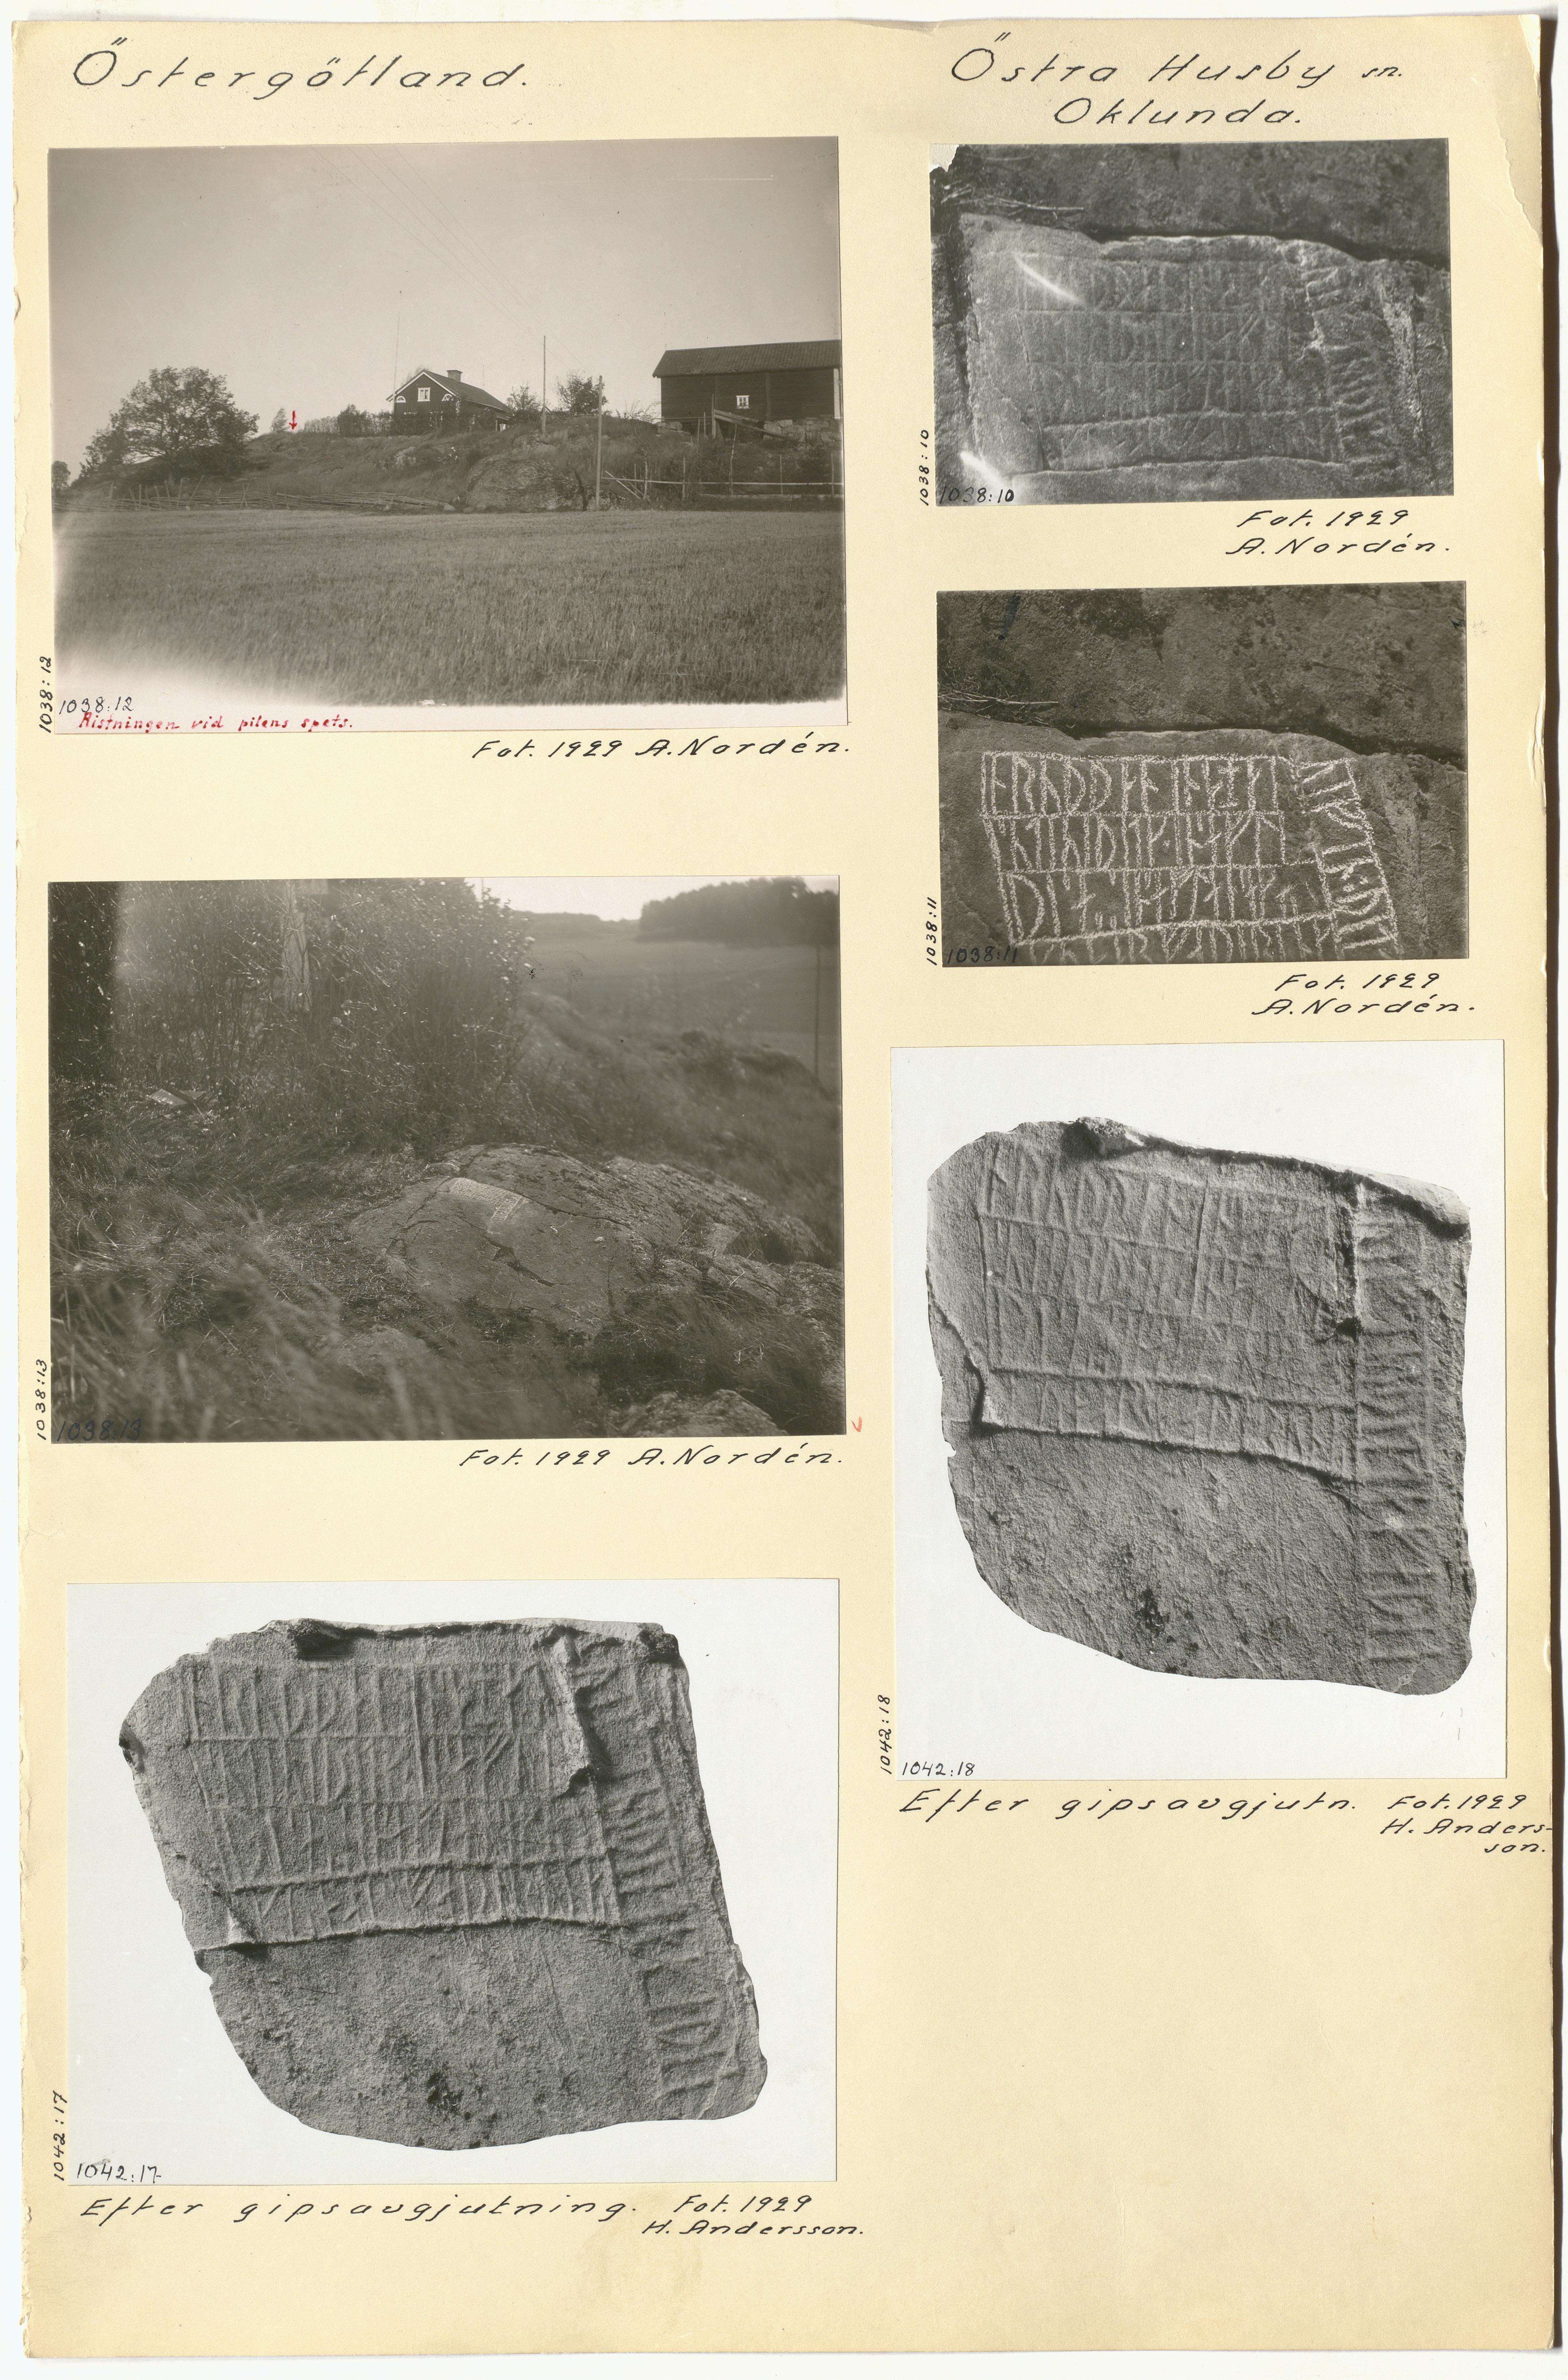 Östergötland.
Östra Husby sn.
Oklunda.
1038:12
1038:12
Ristningen vid pilens spets.
Fot. 1929 A. Nordén.
1038:10
1038:10
Fot. 1929
A. Nordén.
1038:11
1038:11
Fot. 1929
A. Nordén.
1038:13
1038:13
Fot. 1929 A. Nordén.
1042:18
1042:18
Efter gipsavgjutn. Fot. 1929
H. Anders-
son.
1042:17
1042:17
Efter gipsavgjutning. Fot. 1929
H. Andersson.